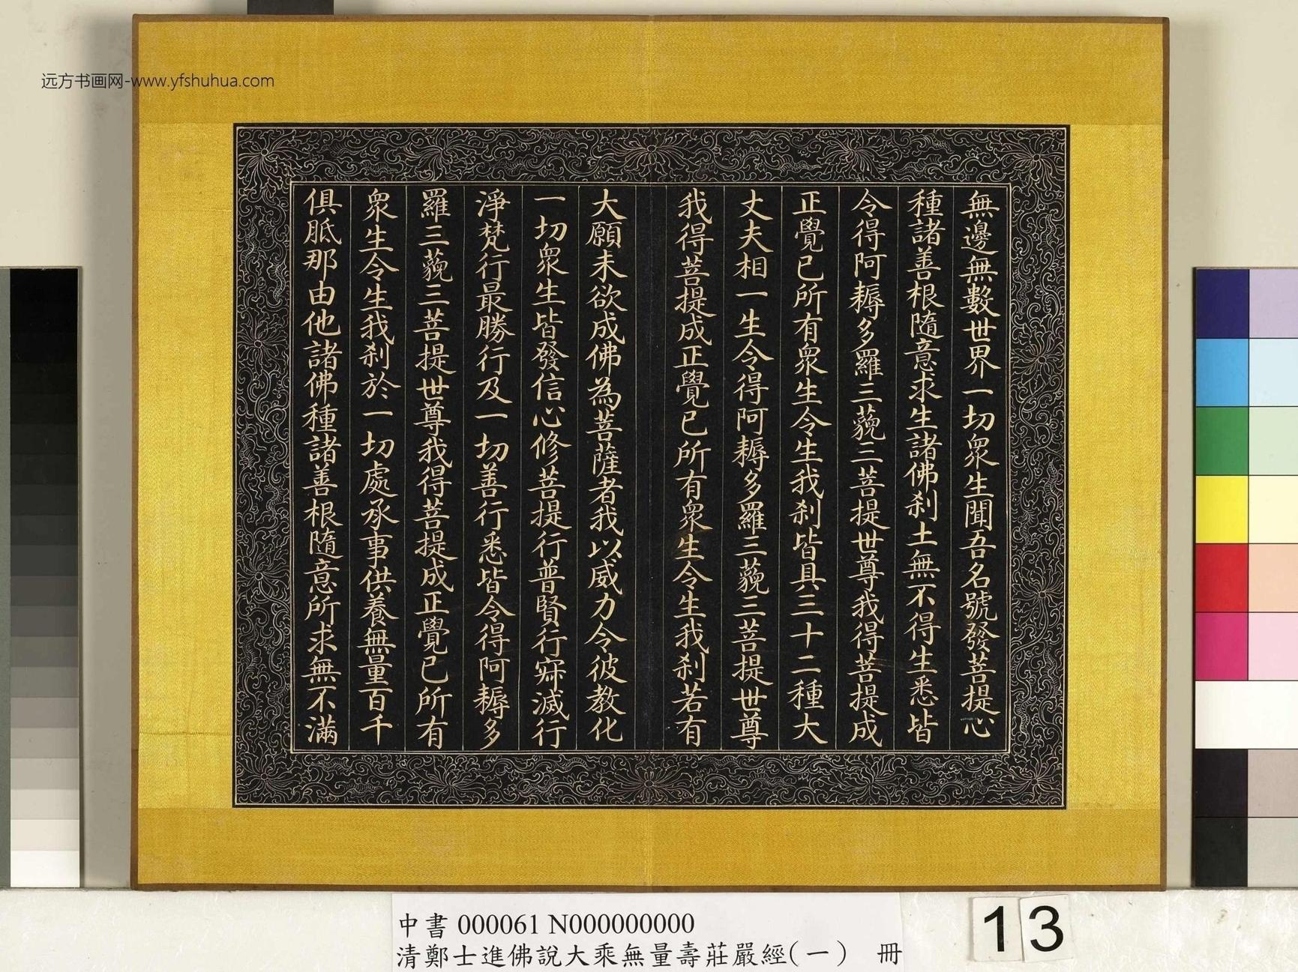 远方书画网-www.yfshuhua.com
無邊無數世界一切衆生聞吾名號發菩提心
種諸善根隨意求生諸佛刹土無不得生悉皆
令得阿耨多羅三藐三菩提世尊我得菩提成
正覺已所有衆生令生我刹皆具三十二種大
丈夫相一生令得阿耨多羅三藐三菩提世尊
我得菩提成正覺已所有衆生令生我刹若有
大願未欲成佛為菩薩者我以威力令彼教化
一切衆生皆發信心修菩提行普賢行寂滅行
淨梵行最勝行及一切善行悉皆令得阿耨多
羅三藐三菩提世尊我得菩提成正覺已所有
衆生令生我刹於一切處承事供養無量百千
俱胝那由他諸佛種諸善根隨意所求無不滿
中書 000061 N000000000
清鄭士進佛說大乘無量壽莊嚴經(一) 冊
13